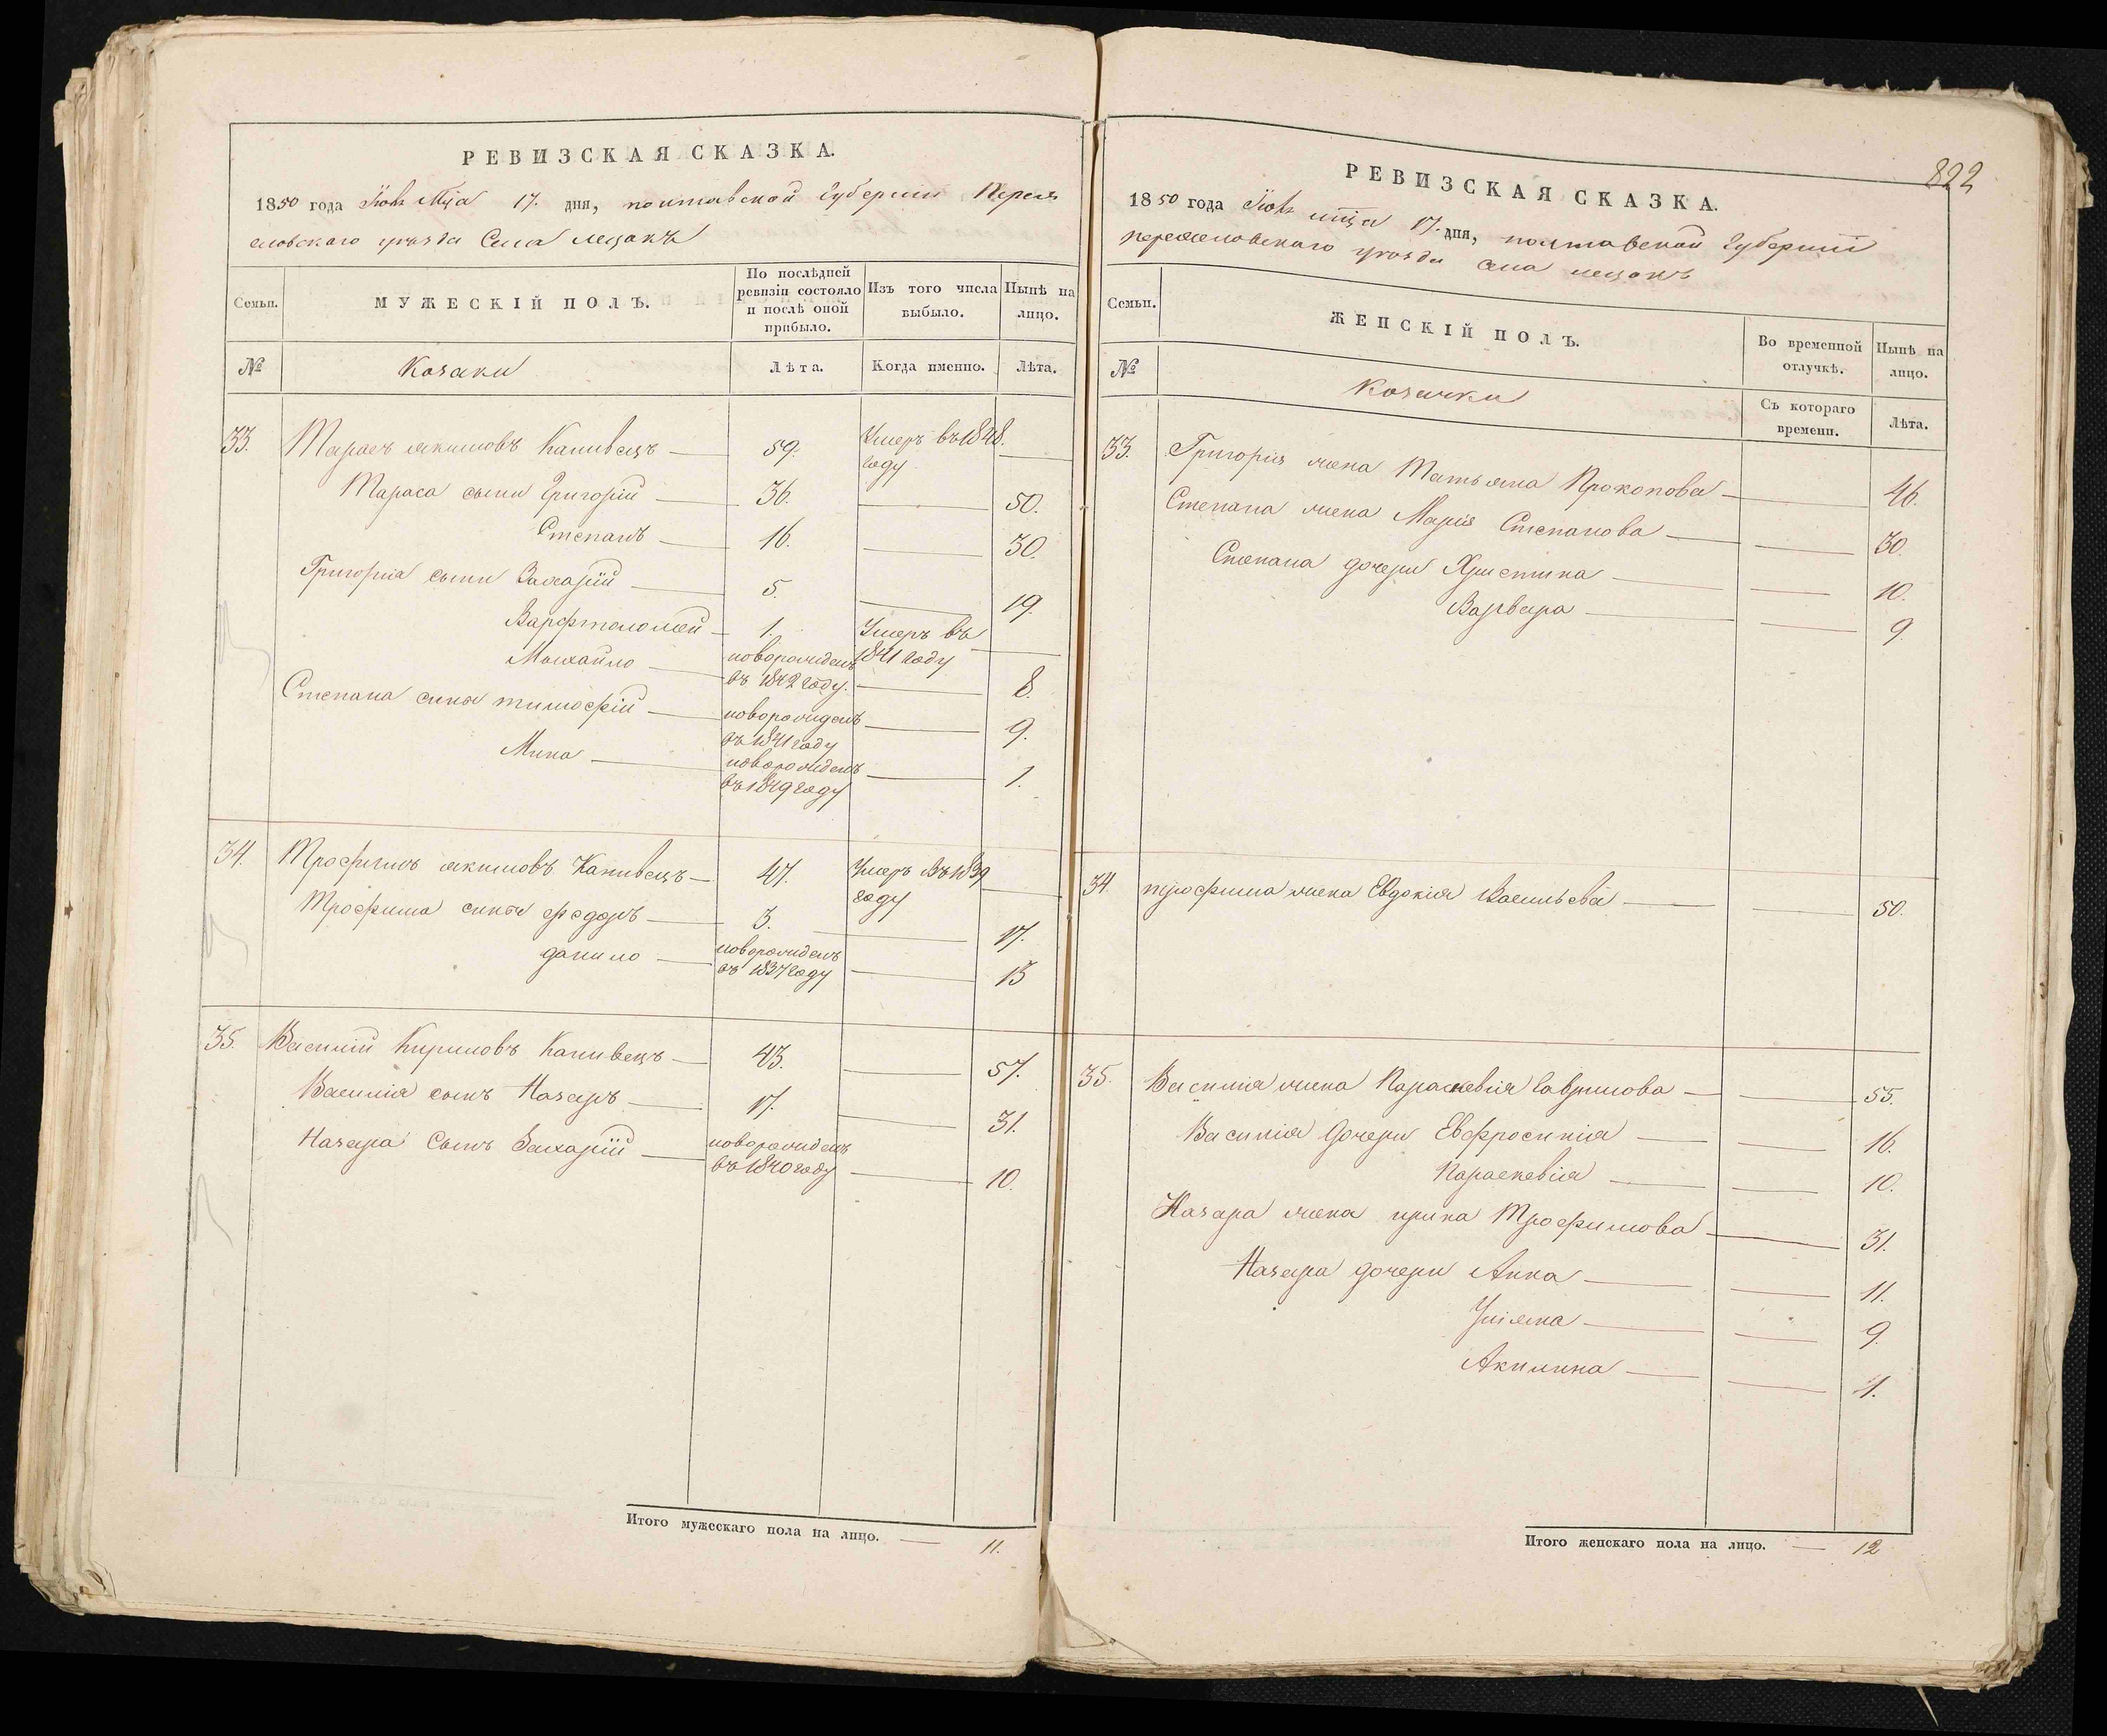 РЕВИЗСКАЯ СКАЗКА.
1850 года мца 17. дня, полтавской губерніи Переяс
ловскаго уезда Села лецокъ
Семьи.
МУЖЕСКІЙ ПОЛЪ.
По послѣдней ревизіи состояло и послѣ оной прибыло.
Изъ того числа выбыло.
Нынѣ на лицо.
№
Козаки
Лѣта.
Когда именно.
Лѣта.
33. Тарасъ якимовъ Канивецъ 59. Умеръ въ 1848.
году
Тараса сыни Григорій 36. 50.
Степанъ 16. 30.
Григорія сыни Захарій 5. 19.
Варфтоломей 1. Умеръ въ
1841 году
Михайло новорожденъ
въ 1842 году. 8.
Степана сина тимофій новорожденъ
въ 1841 году 9.
Мина новорожденъ
въ 1849 году 1.
34. Трофимъ якимовъ Канивецъ 47. Умеръ въ 1839
году
Трофима сини федоръ 3. 17.
данило новорожденъ
въ 1837 году 13
35. Василій Кириловъ Канивецъ 43. 57.
Василія сынъ Назаръ 17. 31.
Назара Сынъ Захарій новорожденъ
въ 1840 году 10.
Итого мужескаго пола на лицо. 11.
822
РЕВИЗСКАЯ СКАЗКА.
1850 года мца 17. дня, полтавской губерніи
переясловскаго уезда села лецокъ
Семьи.
ЖЕНСКІЙ ПОЛЪ.
Во временной отлучкѣ.
Нынѣ на лицо.
№
Козачки
Съ котораго времени.
Лѣта.
33. Григорія жена Татьяна Прокопова 46.
Степана жена Марія Степанова 30.
Степана дочери Христина 10.
Варвара 9.
34. трофима жена Евдокія Васильева 50.
35. Василія жена Параскевія Гаврилова 55.
Василія Дочери Евфросинія 16.
Параскевія 10.
Назара жена ирина Трофимова 31.
Назара дочери Анна 11.
Уліяна 9.
Акилина 4.
Итого женскаго пола на лицо. 12